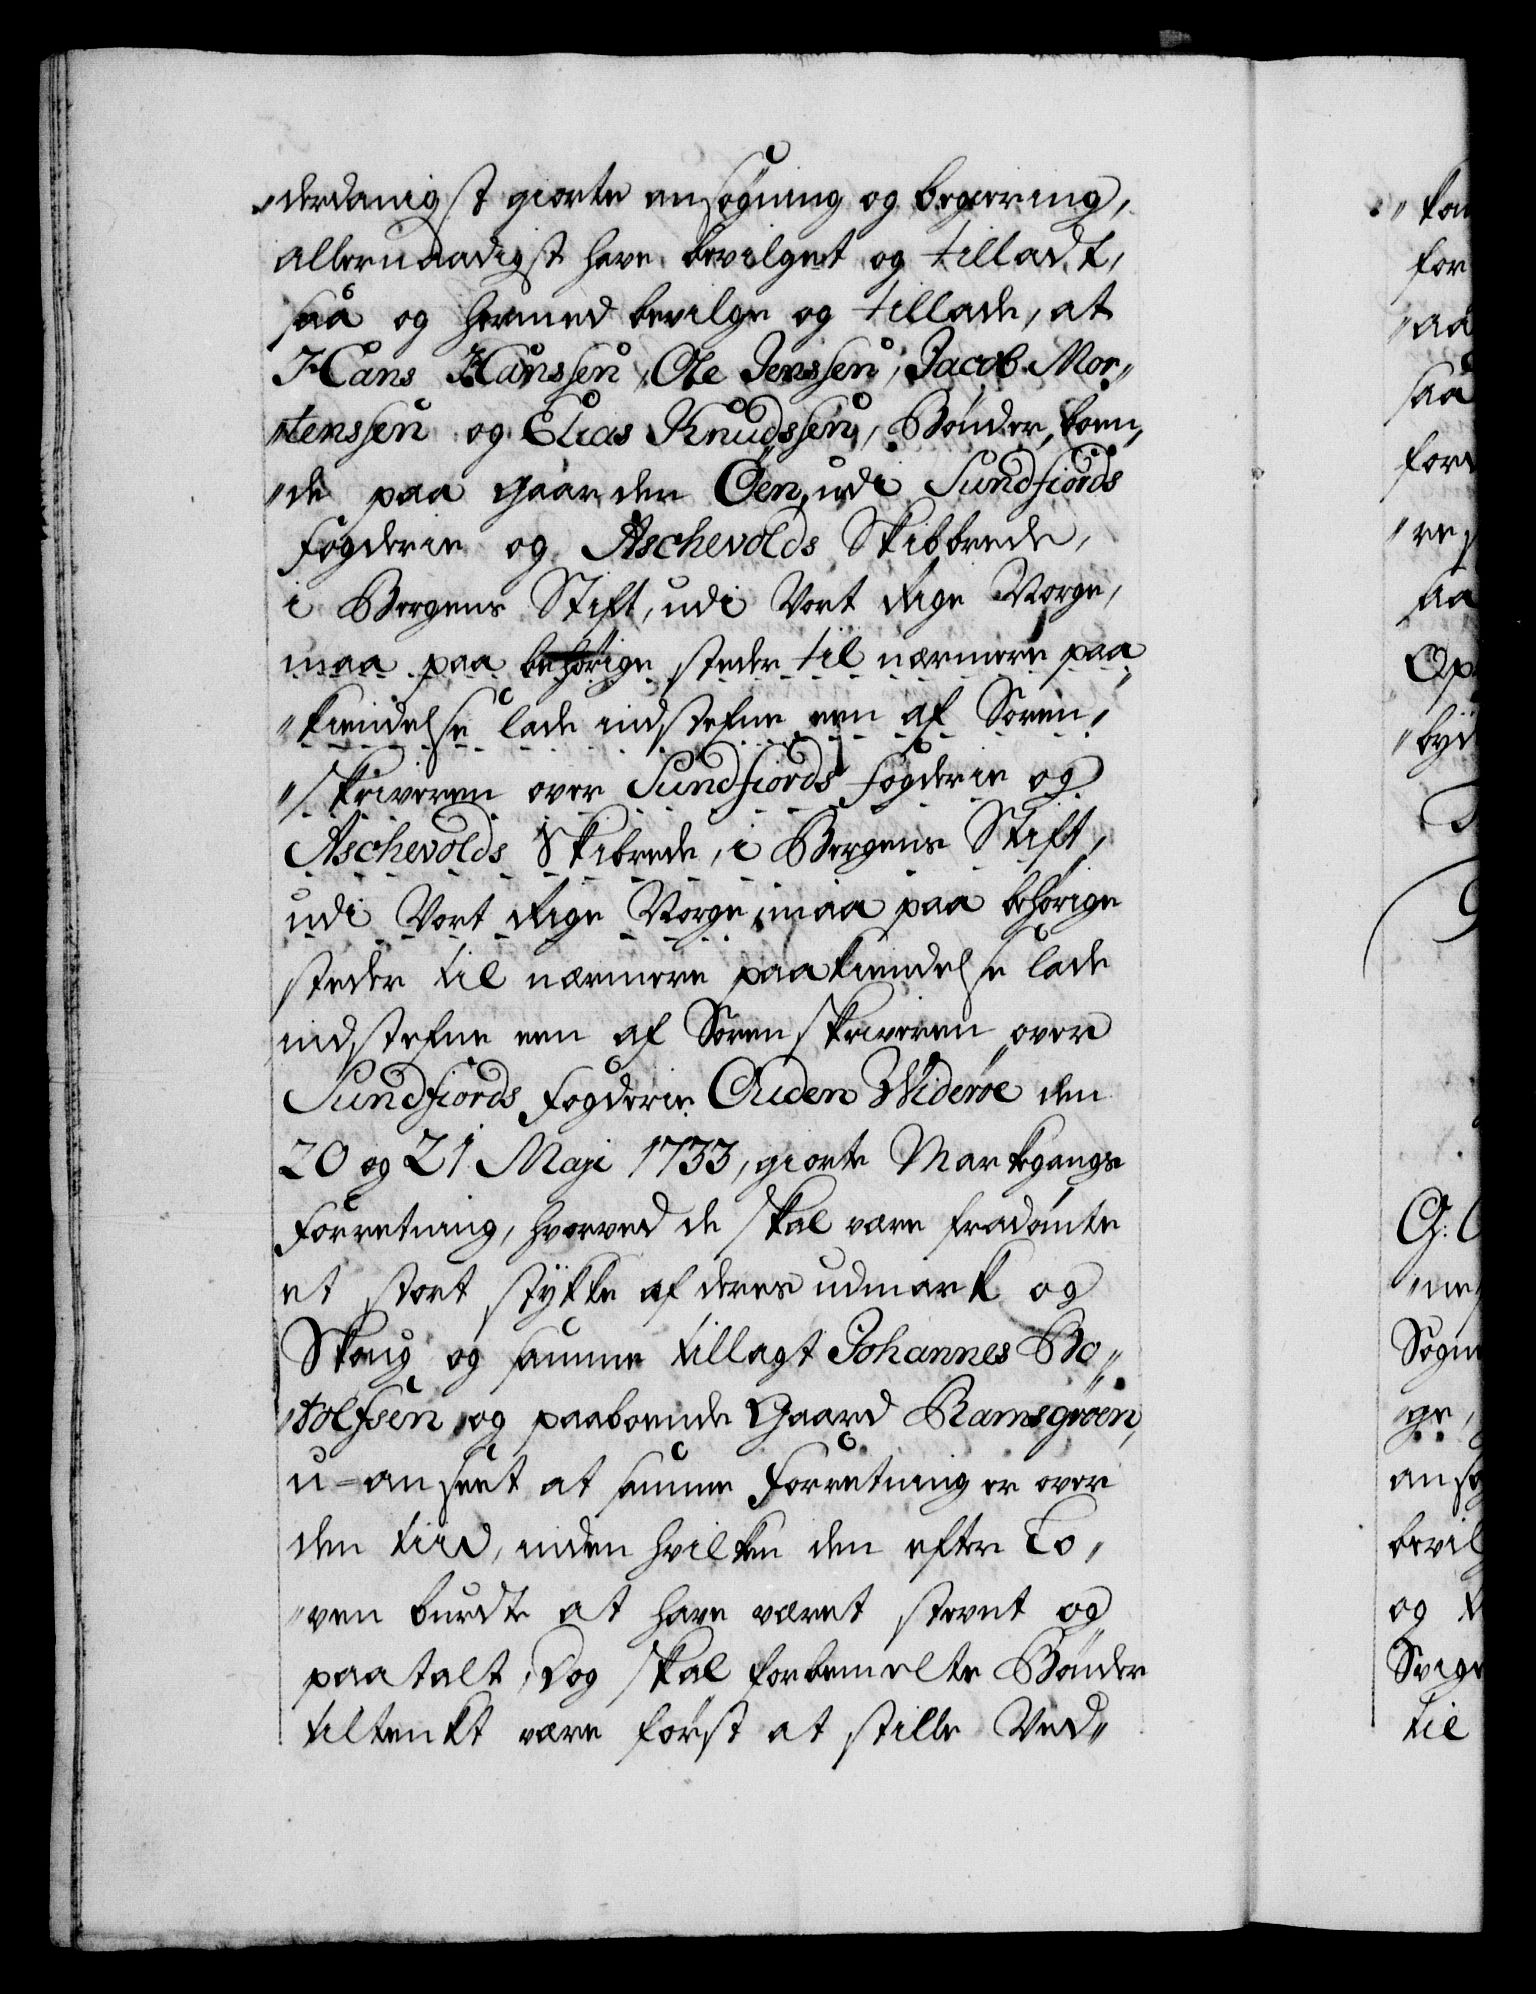 „derdanigst giorte ansøgning og begiering,
allernaadigst have bevilget og tilladt,
saa og hermed bevilge og tillade, at
Hans Hanssen, Ole Jenssen, Jacob Mor„
„tenssen og Elias Knudssen, Bønder, boen„
„de paa Gaarden Øen, udi Sundfiords
Fogderie og Aschevolds Skibbrede,
i Bergens Stift, udi Vort Rige Norge,
maa paa behörige steder til nærmere paa„
„kiendelse lade indstefne een af Soren„
„skriveren over Sundfiords Fogderie og
Aschevolds Skibrede, i Bergens Stift,
udi Vort Rige Norge, maa paa behörige
steder til nærmere paakiendelse lade
indstefne een af Sorenskriveren over
Sundfiords Fogderie Auden Widerøe den
20 og 21 Maji 1733, giorte Markegangs
Forretning, hvorved de skal være fradömte
et stort stykke af deres udmark og
Skoug og samme tillagt Johannes Bo„
„tolfsen og paaboende Gaard Ramsgröen,
u-anseet at samme Forretning er over
den tiid, inden hvilken den efter Lo„
„ven burdte at have været stevnt og
paatalt, Dog skal forbemelte Bönder
tiltenkt være först at stille Ved„
for
„aa
saa
„byd
Sogne
„ge,
bevil
og
til